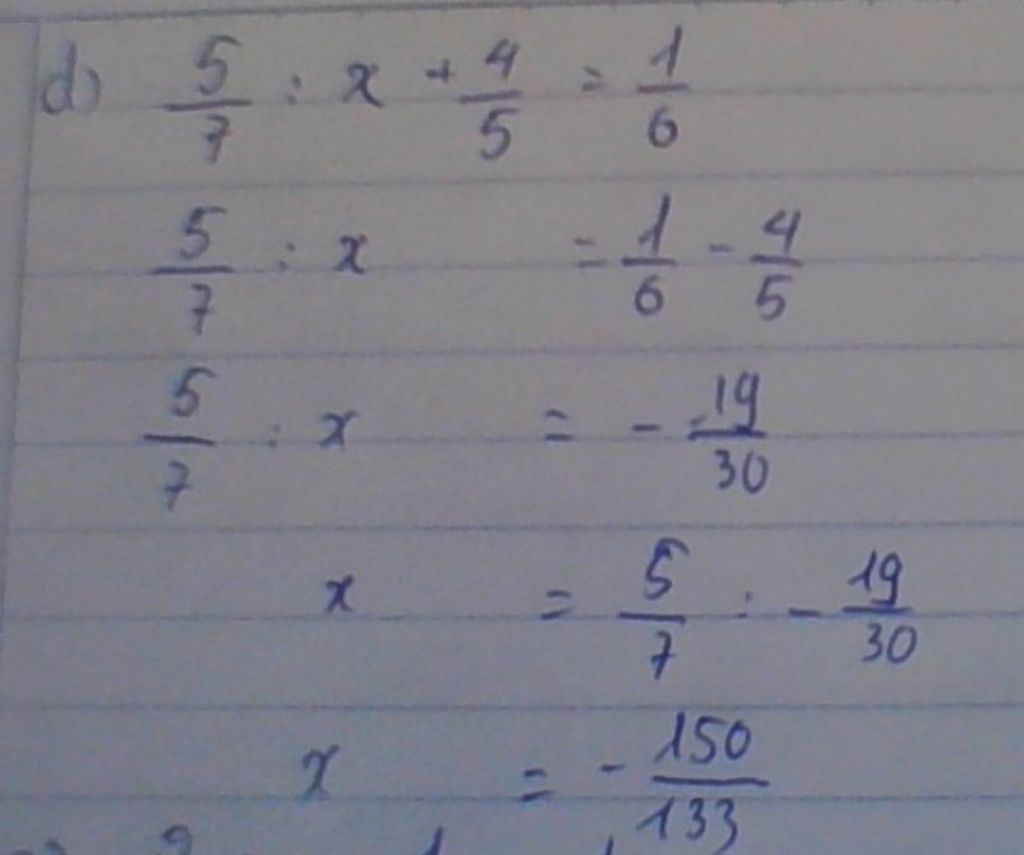 d) 5/7 : x + 4/5 = 1/6
5/7 : x = 1/6 - 4/5
5/7 : x = - 19/30
x = 5/7 : - 19/30
x = - 150/133